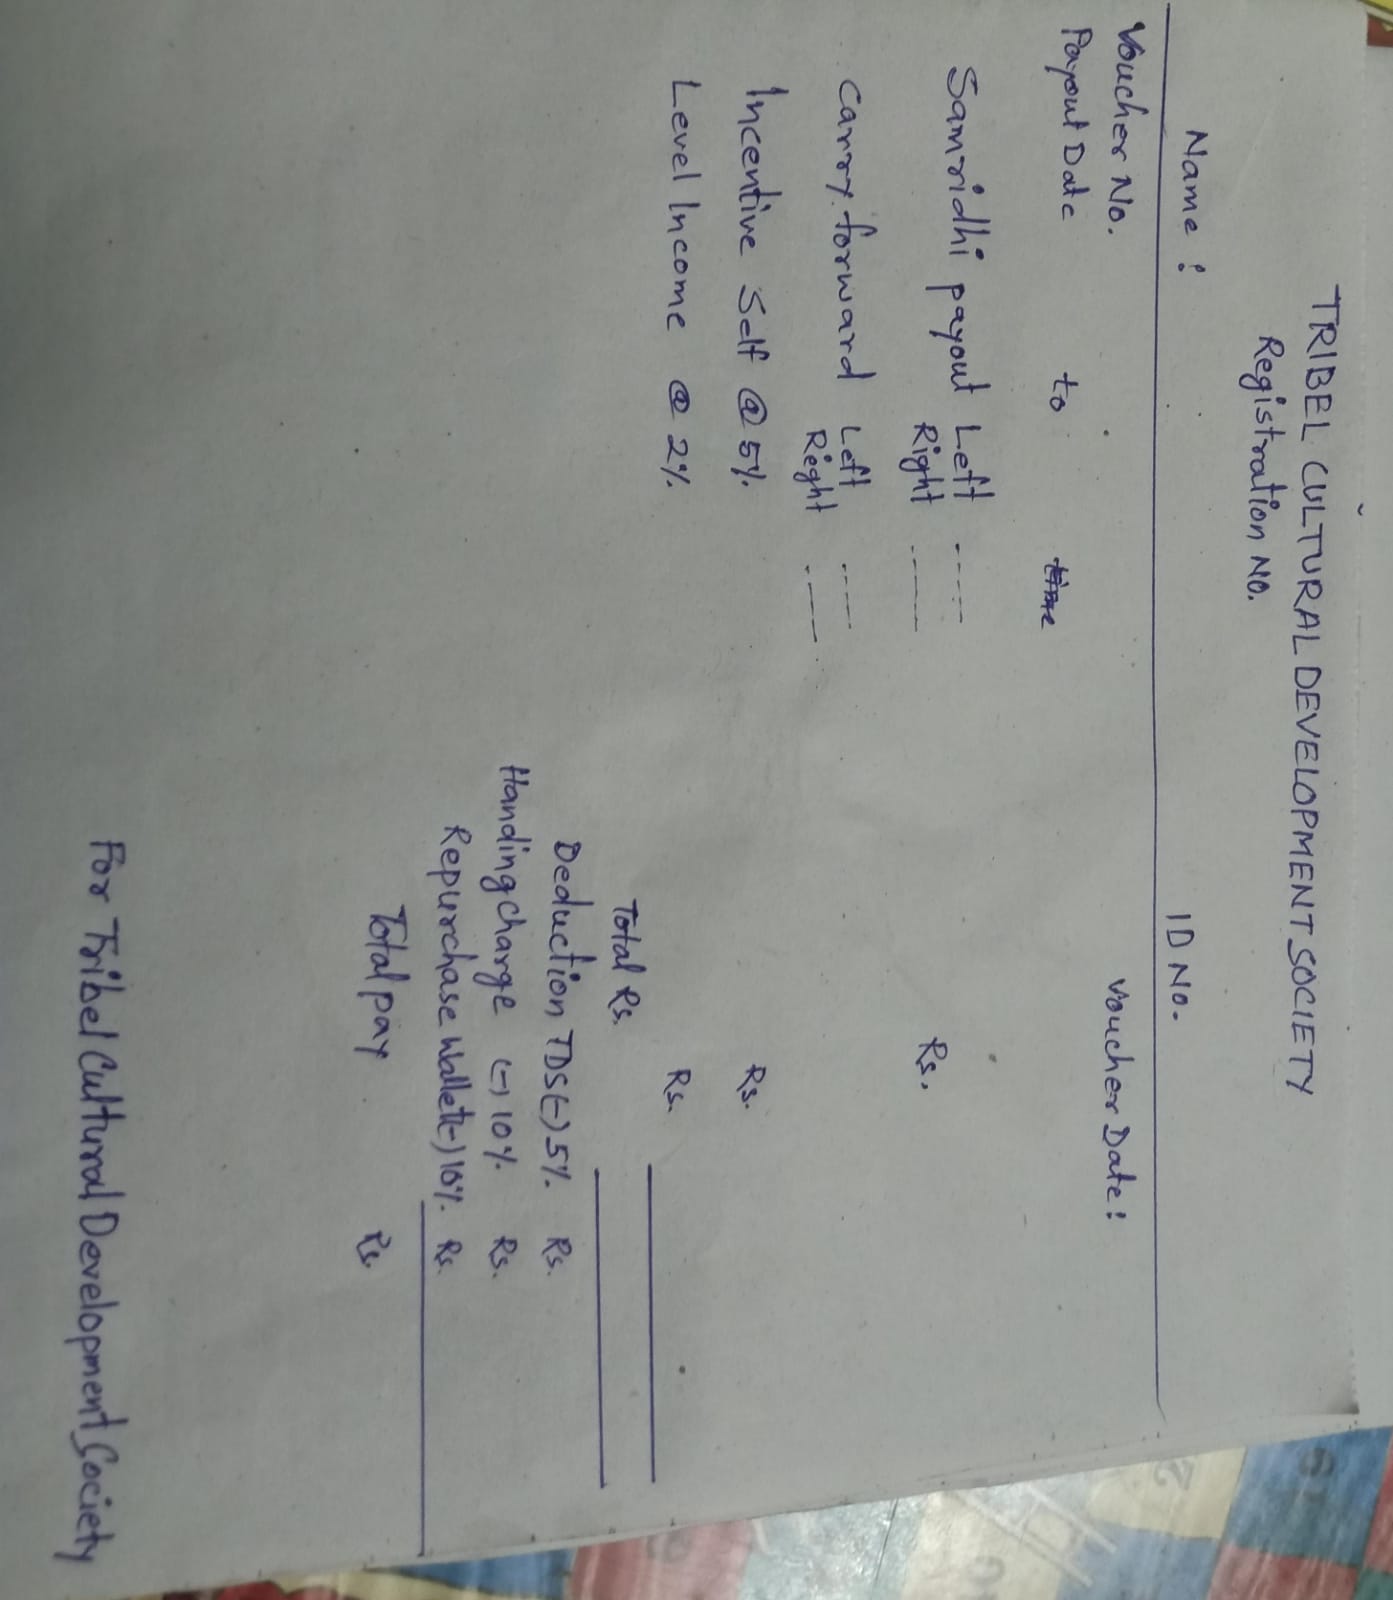 TRIBEL CULTURAL DEVELOPMENT SOCIETY
Registration NO.
Name :
ID NO.
Voucher No.
Voucher Date :
Payout Date to time
Samridhi payout Left -----
Right -----
Rs.
Carry forward Left -----
Right -----
Incentive Self @ 5%. Rs.
Level Income @ 2%. Rs.
Total Rs.
Deduction TDS (-) 5%. Rs.
Handing charge (-) 10%. Rs.
Repurchase Wallet (-) 10%. Rs.
Total pay Rs
For Tribel Cultural Development Society